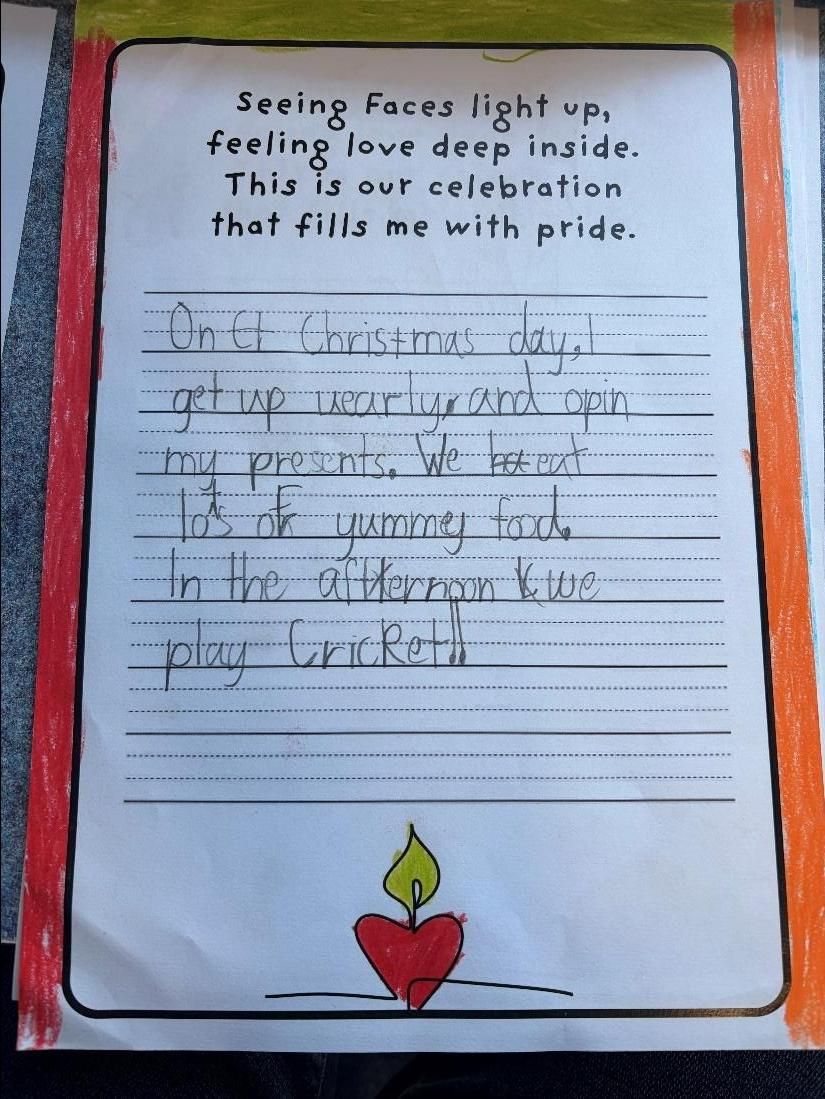 Seeing Faces light up,
feeling love deep inside.
This is our celebration
that fills me with pride.
On Christmas day, I
get up uearly, and opin
my presents. We eat
lots of yummey food.
In the afternoon we
play Cricket!!